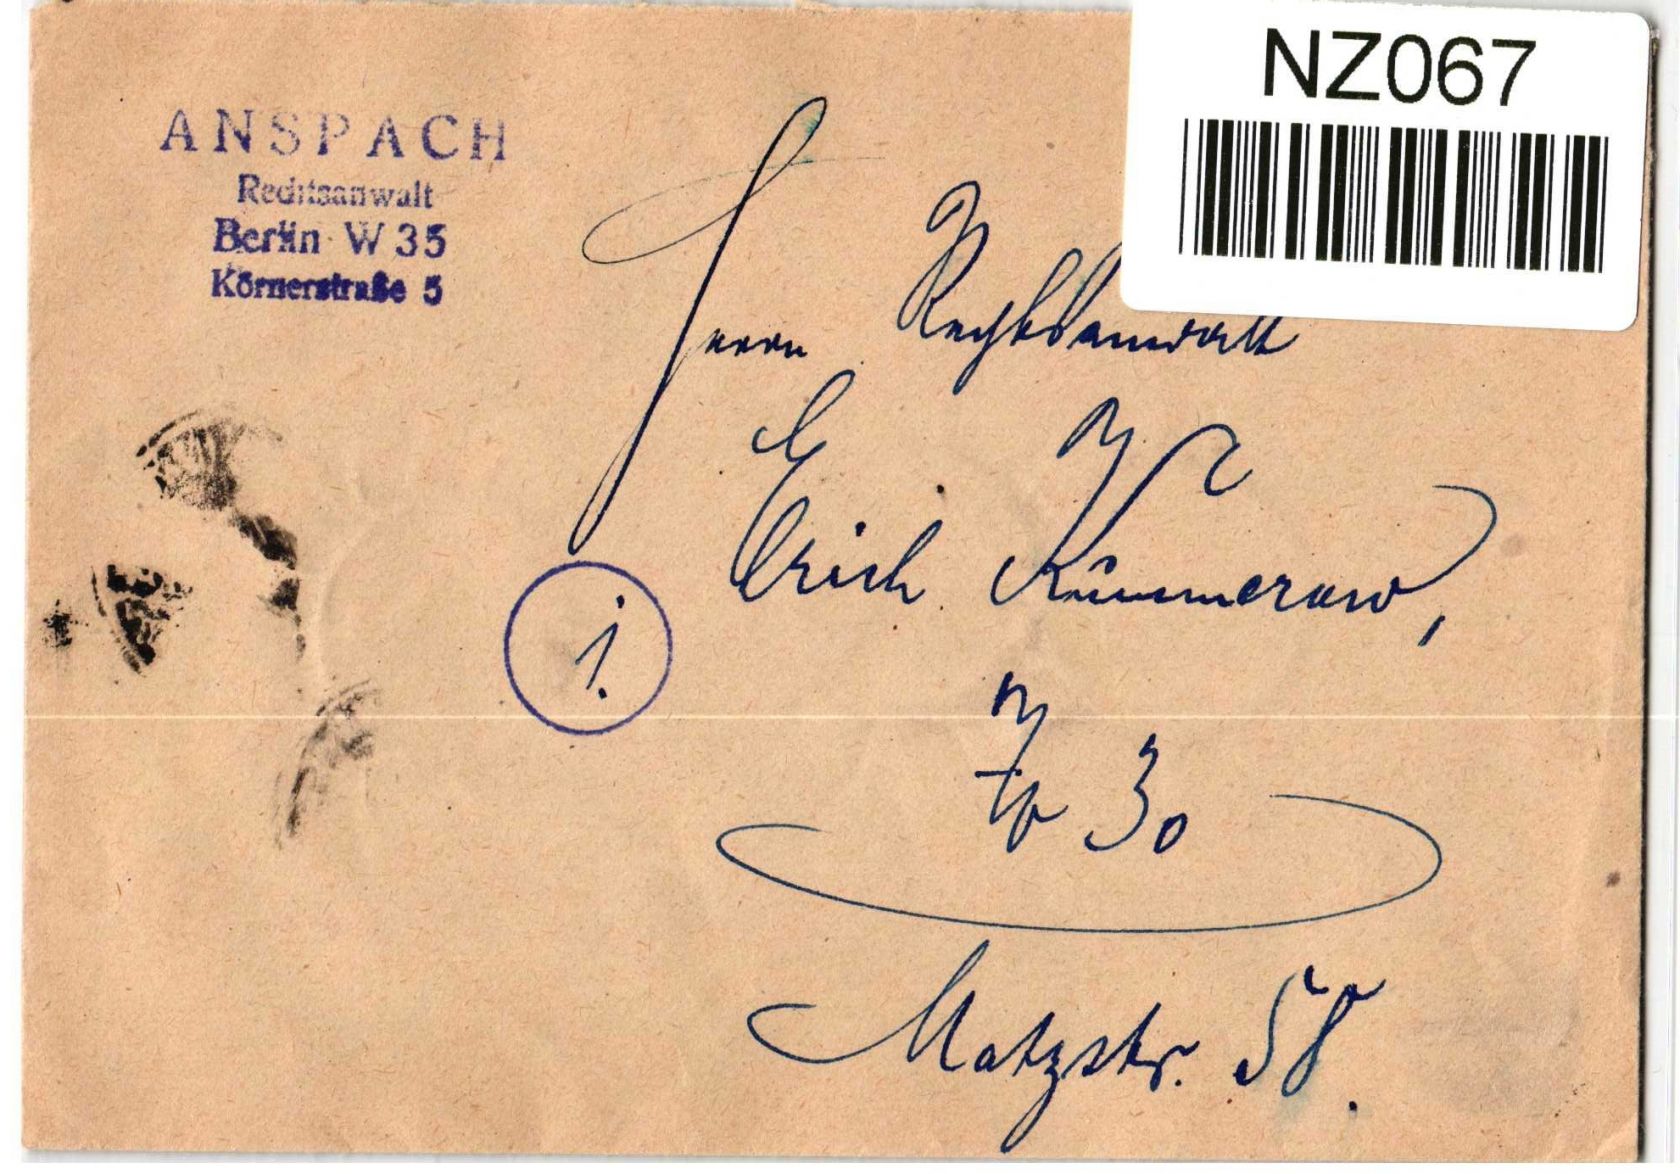 NZ067
ANSPACH
Rechtsanwalt
Berlin W 35
Körnerstraße 5
Herrn Rechtsanwalt
Erich Kümmerow,
1.
30
Motzstr. 58.